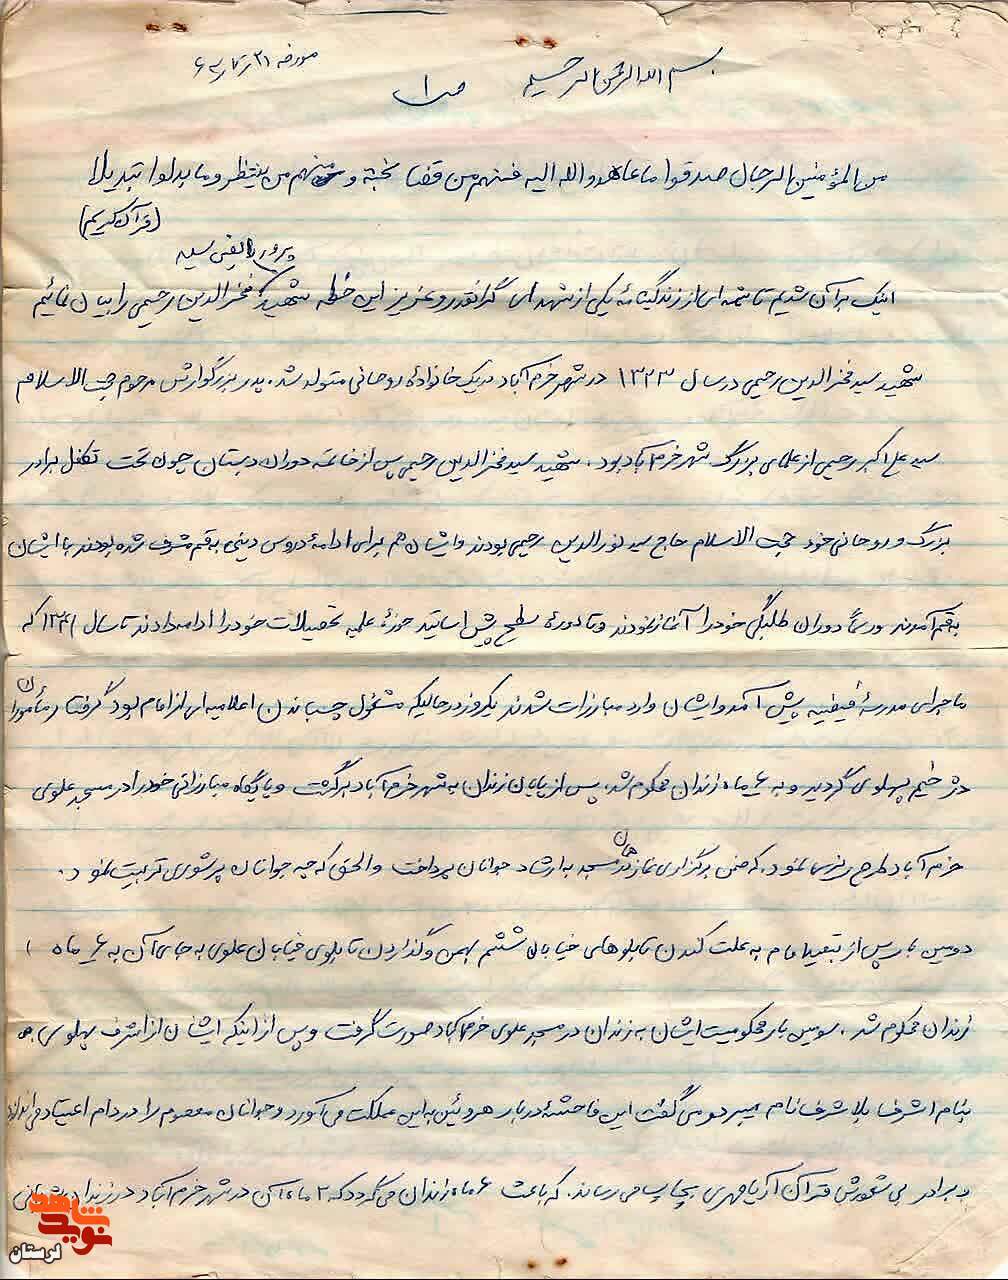 بسم الله الرحمن الرحیم
ص ۱
مورخه ۲۱
من المؤمنین الرجال صدقوا ما عاهدو الله الیه فمنهم من قضا نحبة و منهم من ینتظر و ما بدلوا تبدیلا
(قرآن کریم)
اینک برآن شدیم تا شمه ای از زندگینامهٔ یکی از شهدای گرانقدر و عزیز این خطه شهید سید فخرالدین رحیمی را بیان نمائیم
شهید سید فخرالدین رحیمی در سال ۱۳۲۳ در شهر خرم آباد در یک خانوادهٔ روحانی متولد شد. پدر بزرگوارش مرحوم حجت الاسلام
سید علی اکبر رحیمی از علمای بزرگ شهر خرم آباد بود. شهید سید فخرالدین رحیمی پس از خاتمه دوران دبستان چون تحت تکفل برادر
بزرگ و روحانی خود حجت الاسلام حاج سید نورالدین رحیمی بودند و ایشان هم برای ادامهٔ دروس دینی بقم مشرف شده بودند با ایشان
بقم آمدند و رسماً دوران طلبگی خود را آغاز نمودند و تا دورهٔ سطح پیش اساتید حوزهٔ علمیه تحصیلات خود را ادامه دادند تا سال ۱۳۴۱ که
ماجرای مدرسهٔ فیضیه پیش آمد و ایشان وارد مبارزات شدند یکروز در حالیکه مشغول چسباندن اعلامیه ای از امام بود گرفتار مأموران
دژخیم پهلوی گردید و به ۶ ماه زندان محکوم شد. پس از پایان زندان به شهر خرم آباد برگشت و پایگاه مبارزاتی خود را در مسجد علوی
خرم آباد طرح ریزی نمود. که ضمن برگزاری نماز در همان مسجد به ارشاد جوانان پرداخت و الحق که چه جوانان پرشوری تربیت نمود.
دومین بار پس از تبعید امام به علت کندن تابلوهای خیابان ششم بهمن و گذاردن تابلوی خیابان علوی به جای آن به ۶ ماه
زندان محکوم شد. سومین بار محکومیت ایشان به زندان در مسجد علوی خرم آباد صورت گرفت و پس از اینکه ایشان از اشرف پهلوی
بنام اشرف بلا شرف نام میبرد و می گفت این فاحشهٔ دربار هروئین به این مملکت می آورد و جوانان معصوم را در دام اعتیاد می اندازد
و برادر بی شعورش قرآن آریامهری بچاپ می رساند. که باعث ۶ ماه زندان می گردد که ۳ ماه آن در شهر خرم آباد در زندان شهربانی
نوید شاهد
لرستان